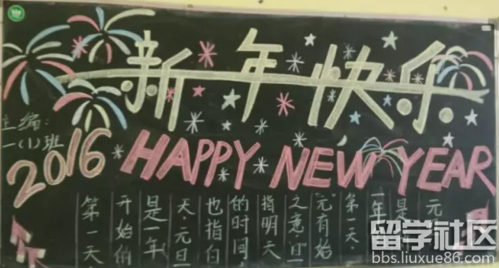 新年快乐
主编:
一(1)班
2016 HAPPY NEW YEAR
元
是
一年
第一天
元有始
之意旦
指明天
的时间
也指白
天.元旦
是一年
开始的
第一天
留学社区
bbs.liuxue86.com